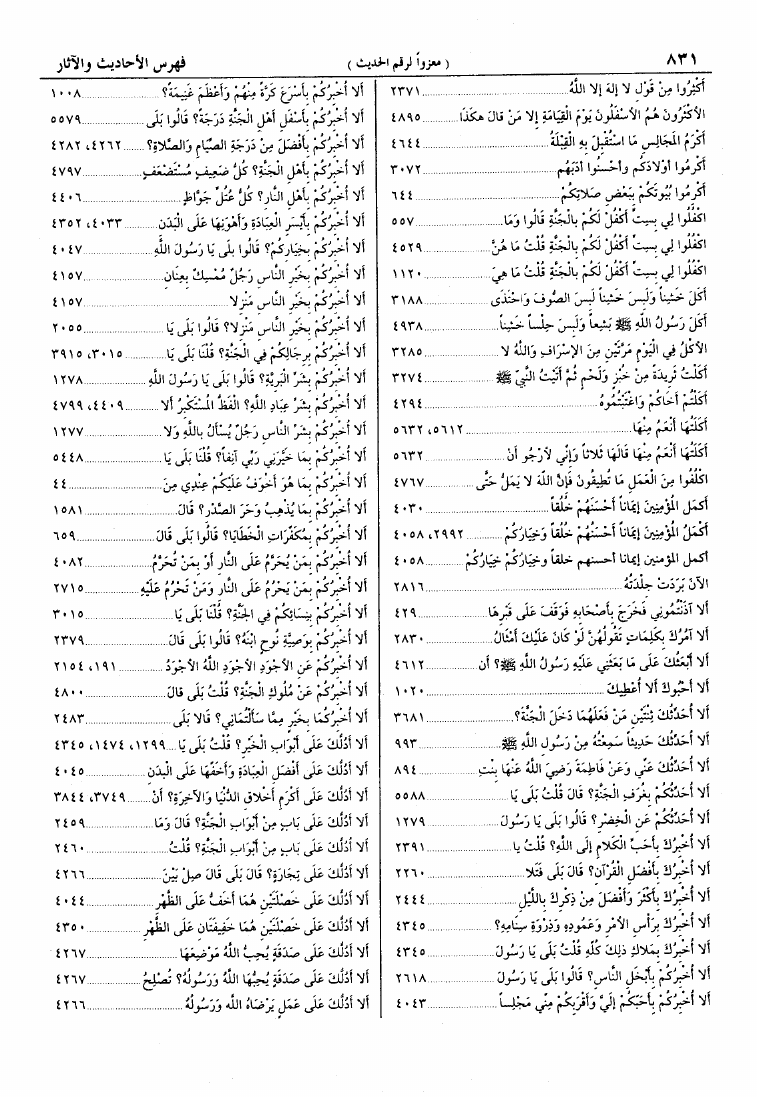 ٨٣١
( معزواً لرقم الحديث )
فهرس الأحاديث والآثار
أَكْثِرُوا مِنْ قَوْلِ لا إله إلا اللَّهُ ٢٣٧١
الأَكْثَرُونَ هُمُ الأَسْفَلُونَ يَوْمَ الْقِيَامَةِ إلا مَنْ قَالَ هكَذَا ٤٨٩٥
أَكْرَمُ المَجَالِسِ مَا اسْتُقْبِلَ بِهِ القِبْلَةُ ٤٦٤٤
أَكْرِمُوا أَوْلادَكُم وأحْسِنُوا أَدَبَهُم ٣٠٧٢
أَكْرِمُوا بُيُوتَكُم بِبَعْضِ صَلاتِكُمْ ٦٤٤
اكْفُلُوا لِي بِسِتٍّ أَكْفُلْ لَكُم بِالْجَنَّةِ قَالُوا وَمَا ٥٥٧
اكْفُلُوا لِي بِسِتٍّ أَكْفُلْ لَكُمْ بِالْجَنَّةِ قُلْتُ مَا هُنَّ ٤٥٢٩
اكْفُلُوا لِي بِسِتٍّ أَكْفُلْ لَكُمْ بِالْجَنَّةِ قُلْتُ مَا هِيَ ١١٢٠
أَكَلَ خَشِناً وَلَبِسَ خَشِناً لَبِسَ الصُّوفَ وَاحْتَذَى ٣١٨٨
أَكَلَ رَسُولُ اللَّهِ ﷺ بَشِعاً وَلَبِسَ حِلْساً خَشِناً ٤٩٣٨
الأَكْلُ فِي الْيَوْمِ مَرَّتَيْنِ مِنَ الإِسْرَافِ وَاللَّهُ لا ٣٢٨٥
أَكَلْتُ ثَرِيدَةً مِنْ خُبْزٍ وَلَحْمٍ ثُمَّ أَتَيْتُ النَّبِيَّ ﷺ ٣٢٧٤
أَكَلْتُمْ أَخَاكُمْ وَاغْتَبْتُمُوهُ ٤٢٩٤
أَكَلَتُهَا أَنْعَمُ مِنْهَا ٥٦١٢، ٥٦٣٢
أَكَلَتُهَا أَنْعَمُ مِنْهَا قَالَهَا ثَلاثاً وَإِنِّي لأَرْجُو أَنْ ٥٦٣٢
اكْلُفُوا مِنَ العَمَلِ مَا تُطِيقُونَ فَإِنَّ اللَّهَ لا يَمَلُّ حَتَّى ٤٧٦٧
أكمل المُؤْمِنِينَ إيمَاناً أَحْسَنَهُمْ خُلُقاً ٤٠٣٠
أَكْمَلُ المُؤْمِنِينَ إيمَاناً أَحْسَنُهُمْ خُلُقاً وَخِيَارُكُمْ ٢٩٩٢، ٤٠٥٨
أكمل المؤمنين إيمانا أحسنهم خلقاً وخِيَارُكُمْ خِيَارُكُمْ ٤٠٥٨
الآنَ بَرَدَتْ جِلْدَتُهُ ٢٨١٦
أَلا آذَنْتُمُونِي فَخَرَجَ بِأَصْحَابِهِ فَوَقَفَ عَلَى قَبْرِهَا ٤٢٩
أَلا آمُرُكَ بِكَلِمَاتٍ تَقُولُهُنَّ لَوْ كَانَ عَلَيْكَ أَمْثَالُ ٢٨٣٠
أَلا أَبْعَثُكَ عَلَى مَا بَعَثَنِي عَلَيْهِ رَسُولُ اللَّهِ ﷺ؟ أَن ٤٦١٢
أَلا أَحْبُوكَ أَلا أُعْطِيكَ ١٠٢٠
أَلا أُحَدِّثُكَ ثِنْتَيْنِ مَنْ فَعَلَهُمَا دَخَلَ الْجَنَّةَ؟ ٣٦٨١
أَلا أُحَدِّثُكَ حَدِيثاً سَمِعْتُهُ مِنْ رَسُولِ اللَّهِ ﷺ ٩٩٣
أَلا أُحَدِّثُكَ عَنِّي وَعَنْ فَاطِمَةَ رَضِيَ اللَّهُ عَنْهَا بِنْتِ ٨٩٤
أَلا أُحَدِّثُكُمْ بِغُرَفِ الْجَنَّةِ؟ قَالَ قُلْتُ بَلَى يَا ٥٥٨٨
أَلا أُحَدِّثُكُمْ عَنِ الْخِضْرِ؟ قَالُوا بَلَى يَا رَسُولَ ١٢٧٩
أَلا أُخْبِرُكَ بِأَحَبِّ الْكَلامِ إِلَى اللَّهِ؟ قُلْتُ يَا ٢٣٩١
أَلا أُخْبِرُكَ بِأَفْضَلِ الْقُرْآنِ؟ قَالَ بَلَى فَتَلا ٢٢٦٠
أَلا أُخْبِرُكَ بِأَكْثَرَ وَأَفْضَلَ مِنْ ذِكْرِكَ بِاللَّيْلِ ٢٤٤٤
أَلا أُخْبِرُكَ بِرَأْسِ الأَمْرِ وَعَمُودِهِ وَذِرْوَةِ سِنَامِهِ؟ ٤٣٤٥
أَلا أُخْبِرُكَ بِمَلاكِ ذلِكَ كُلِّهِ قُلْتُ بَلَى يَا رَسُولَ ٤٣٤٥
أَلا أُخْبِرُكُمْ بِأَبْخَلِ النَّاسِ؟ قَالُوا بَلَى يَا رَسُولَ ٢٦١٨
أَلا أُخْبِرُكُمْ بِأَحَبِّكُمْ إِلَيَّ وَأَقْرَبِكُمْ مِنِّي مَجْلِساً ٤٠٤٣
أَلا أُخْبِرُكُمْ بِأَسْرَعَ كَرَّةً مِنْهُمْ وَأَعْظَمَ غَنِيمَةً؟ ١٠٠٨
أَلا أُخْبِرُكُمْ بِأَسْفَلِ أَهْلِ الْجَنَّةِ دَرَجَةً؟ قَالُوا بَلَى ٥٥٧٩
أَلا أُخْبِرُكُمْ بِأَفْضَلَ مِنْ دَرَجَةِ الصِّيَامِ وَالصَّلاةِ؟ ٤٢٦٢، ٤٢٨٢
أَلا أُخْبِرُكُمْ بِأَهْلِ الْجَنَّةِ؟ كُلُّ ضَعِيفٍ مُسْتَضْعَفٍ ٤٧٩٧
أَلا أُخْبِرُكُمْ بِأَهْلِ النَّارِ؟ كُلُّ عُتُلٍّ جَوَّاظٍ ٤٤٠٦
أَلا أُخْبِرُكُمْ بِأَيْسَرِ العِبَادَةِ وَأَهْوَنِهَا عَلَى الْبَدَنِ ٤٠٣٣، ٤٣٥٢
أَلا أُخْبِرُكُمْ بِخِيَارِكُمْ؟ قَالُوا بَلَى يَا رَسُولَ اللَّهِ ٤٠٤٧
أَلا أُخْبِرُكُمْ بِخَيْرِ النَّاسِ رَجُلٌ مُمْسِكٌ بِعِنَانِ ٤١٥٧
أَلا أُخْبِرُكُمْ بِخَيْرِ النَّاسِ مَنْزِلا ٤١٥٧
أَلا أُخْبِرُكُمْ بِخَيْرِ النَّاسِ مَنْزِلا؟ قَالُوا بَلَى يَا ٢٠٥٥
أَلا أُخْبِرُكُمْ بِرِجَالِكُمْ فِي الْجَنَّةِ؟ قُلْنَا بَلَى يَا ٣٠١٥، ٣٩١٥
أَلا أُخْبِرُكُمْ بِشَرِّ الْبَرِيَّةِ؟ قَالُوا بَلَى يَا رَسُولَ اللَّهِ ١٢٧٨
أَلا أُخْبِرُكُمْ بِشَرِّ عِبَادِ اللَّهِ؟ الْفَظُّ المُسْتَكْبِرُ ألا ٤٤٠٩، ٤٧٩٩
أَلا أُخْبِرُكُمْ بِشَرِّ النَّاسِ رَجُلٌ يُسْأَلُ بِاللَّهِ وَلا ١٢٧٧
أَلا أُخْبِرُكُمْ بِمَا خَيَّرَنِي رَبِّي آنِفاً؟ قُلْنَا بَلَى يَا ٥٤٤٨
أَلا أُخْبِرُكُمْ بِمَا هُوَ أَخْوَفُ عَلَيْكُمْ عِنْدِي مِنَ ٤٤
أَلا أُخْبِرُكُمْ بِمَا يُذْهِبُ وَحَرَ الصَّدْرِ؟ قَالَ ١٥٨١
أَلا أُخْبِرُكُمْ بِمُكَفِّرَاتِ الْخَطَايَا؟ قَالُوا بَلَى قَالَ ٦٥٩
أَلا أُخْبِرُكُمْ بِمَنْ يُحَرَّمُ عَلَى النَّارِ أَوْ بِمَنْ تُحَرَّمُ ٤٠٨٢
أَلا أُخْبِرُكُمْ بِمَنْ يَحْرُمُ عَلَى النَّارِ وَمَنْ تَحْرُمُ عَلَيْهِ ٢٧١٥
أَلا أُخْبِرُكُمْ بِنِسَائِكُمْ فِي الجَنَّةِ؟ قُلْنَا بَلَى يَا ٣٠١٥
أَلا أُخْبِرُكُمْ بِوَصِيَّةِ نُوحٍ ابْنَهُ؟ قَالُوا بَلَى قَالَ ٢٣٧٩
أَلا أُخْبِرُكُمْ عَنِ الأَجْوَدِ الأَجْوَدِ اللَّهُ الأَجْوَدُ ١٩١، ٢١٥٤
أَلا أُخْبِرُكُمْ عَنْ مُلُوكِ الْجَنَّةِ؟ قُلْتُ بَلَى قَالَ ٤٨٠٠
أَلا أُخْبِرُكُمَا بِخَيْرٍ مِمَّا سَأَلْتُمَانِي؟ قَالا بَلَى ٢٤٨٣
أَلا أَدُلُّكَ عَلَى أَبْوَابِ الْخَيْرِ؟ قُلْتُ بَلَى يَا ١٢٩٩، ١٤٧٤، ٤٣٤٥
أَلا أَدُلُّكَ عَلَى أَفْضَلِ العِبَادَةِ وَأَخَفِّهَا عَلَى البَدَنِ ٤٠٤٥
أَلا أَدُلُّكَ عَلَى أَكْرَمِ أَخْلاقِ الدُّنْيَا وَالآخِرَةِ؟ أَنْ ٣٧٤٩، ٣٨٤٤
أَلا أَدُلُّكَ عَلَى بَابٍ مِنْ أَبْوَابِ الْجَنَّةِ؟ قَالَ وَمَا ٢٤٥٩
أَلا أَدُلُّكَ عَلَى بَابٍ مِنْ أَبْوَابِ الْجَنَّةِ؟ قُلْتُ ٢٤٦٠
أَلا أَدُلُّكَ عَلَى تِجَارَةٍ؟ قَالَ بَلَى قَالَ صِلْ بَيْنَ ٤٢٦٦
أَلا أَدُلُّكَ عَلَى خَصْلَتَيْنِ هُمَا أَخَفُّ عَلَى الظَّهْرِ ٤٠٤٤
أَلا أَدُلُّكَ عَلَى خَصْلَتَيْنِ هُمَا خَفِيفَتَانِ عَلَى الظَّهْرِ ٤٣٥٠
أَلا أَدُلُّكَ عَلَى صَدَقَةٍ يُحِبُّ اللَّهُ مَوْضِعَهَا ٤٢٦٧
أَلا أَدُلُّكَ عَلَى صَدَقَةٍ يُحِبُّهَا اللَّهُ وَرَسُولُهُ؟ تُصْلِحُ ٤٢٦٧
أَلا أَدُلُّكَ عَلَى عَمَلٍ يَرْضَاهُ اللَّه وَرَسُولُهُ ٤٢٦٦